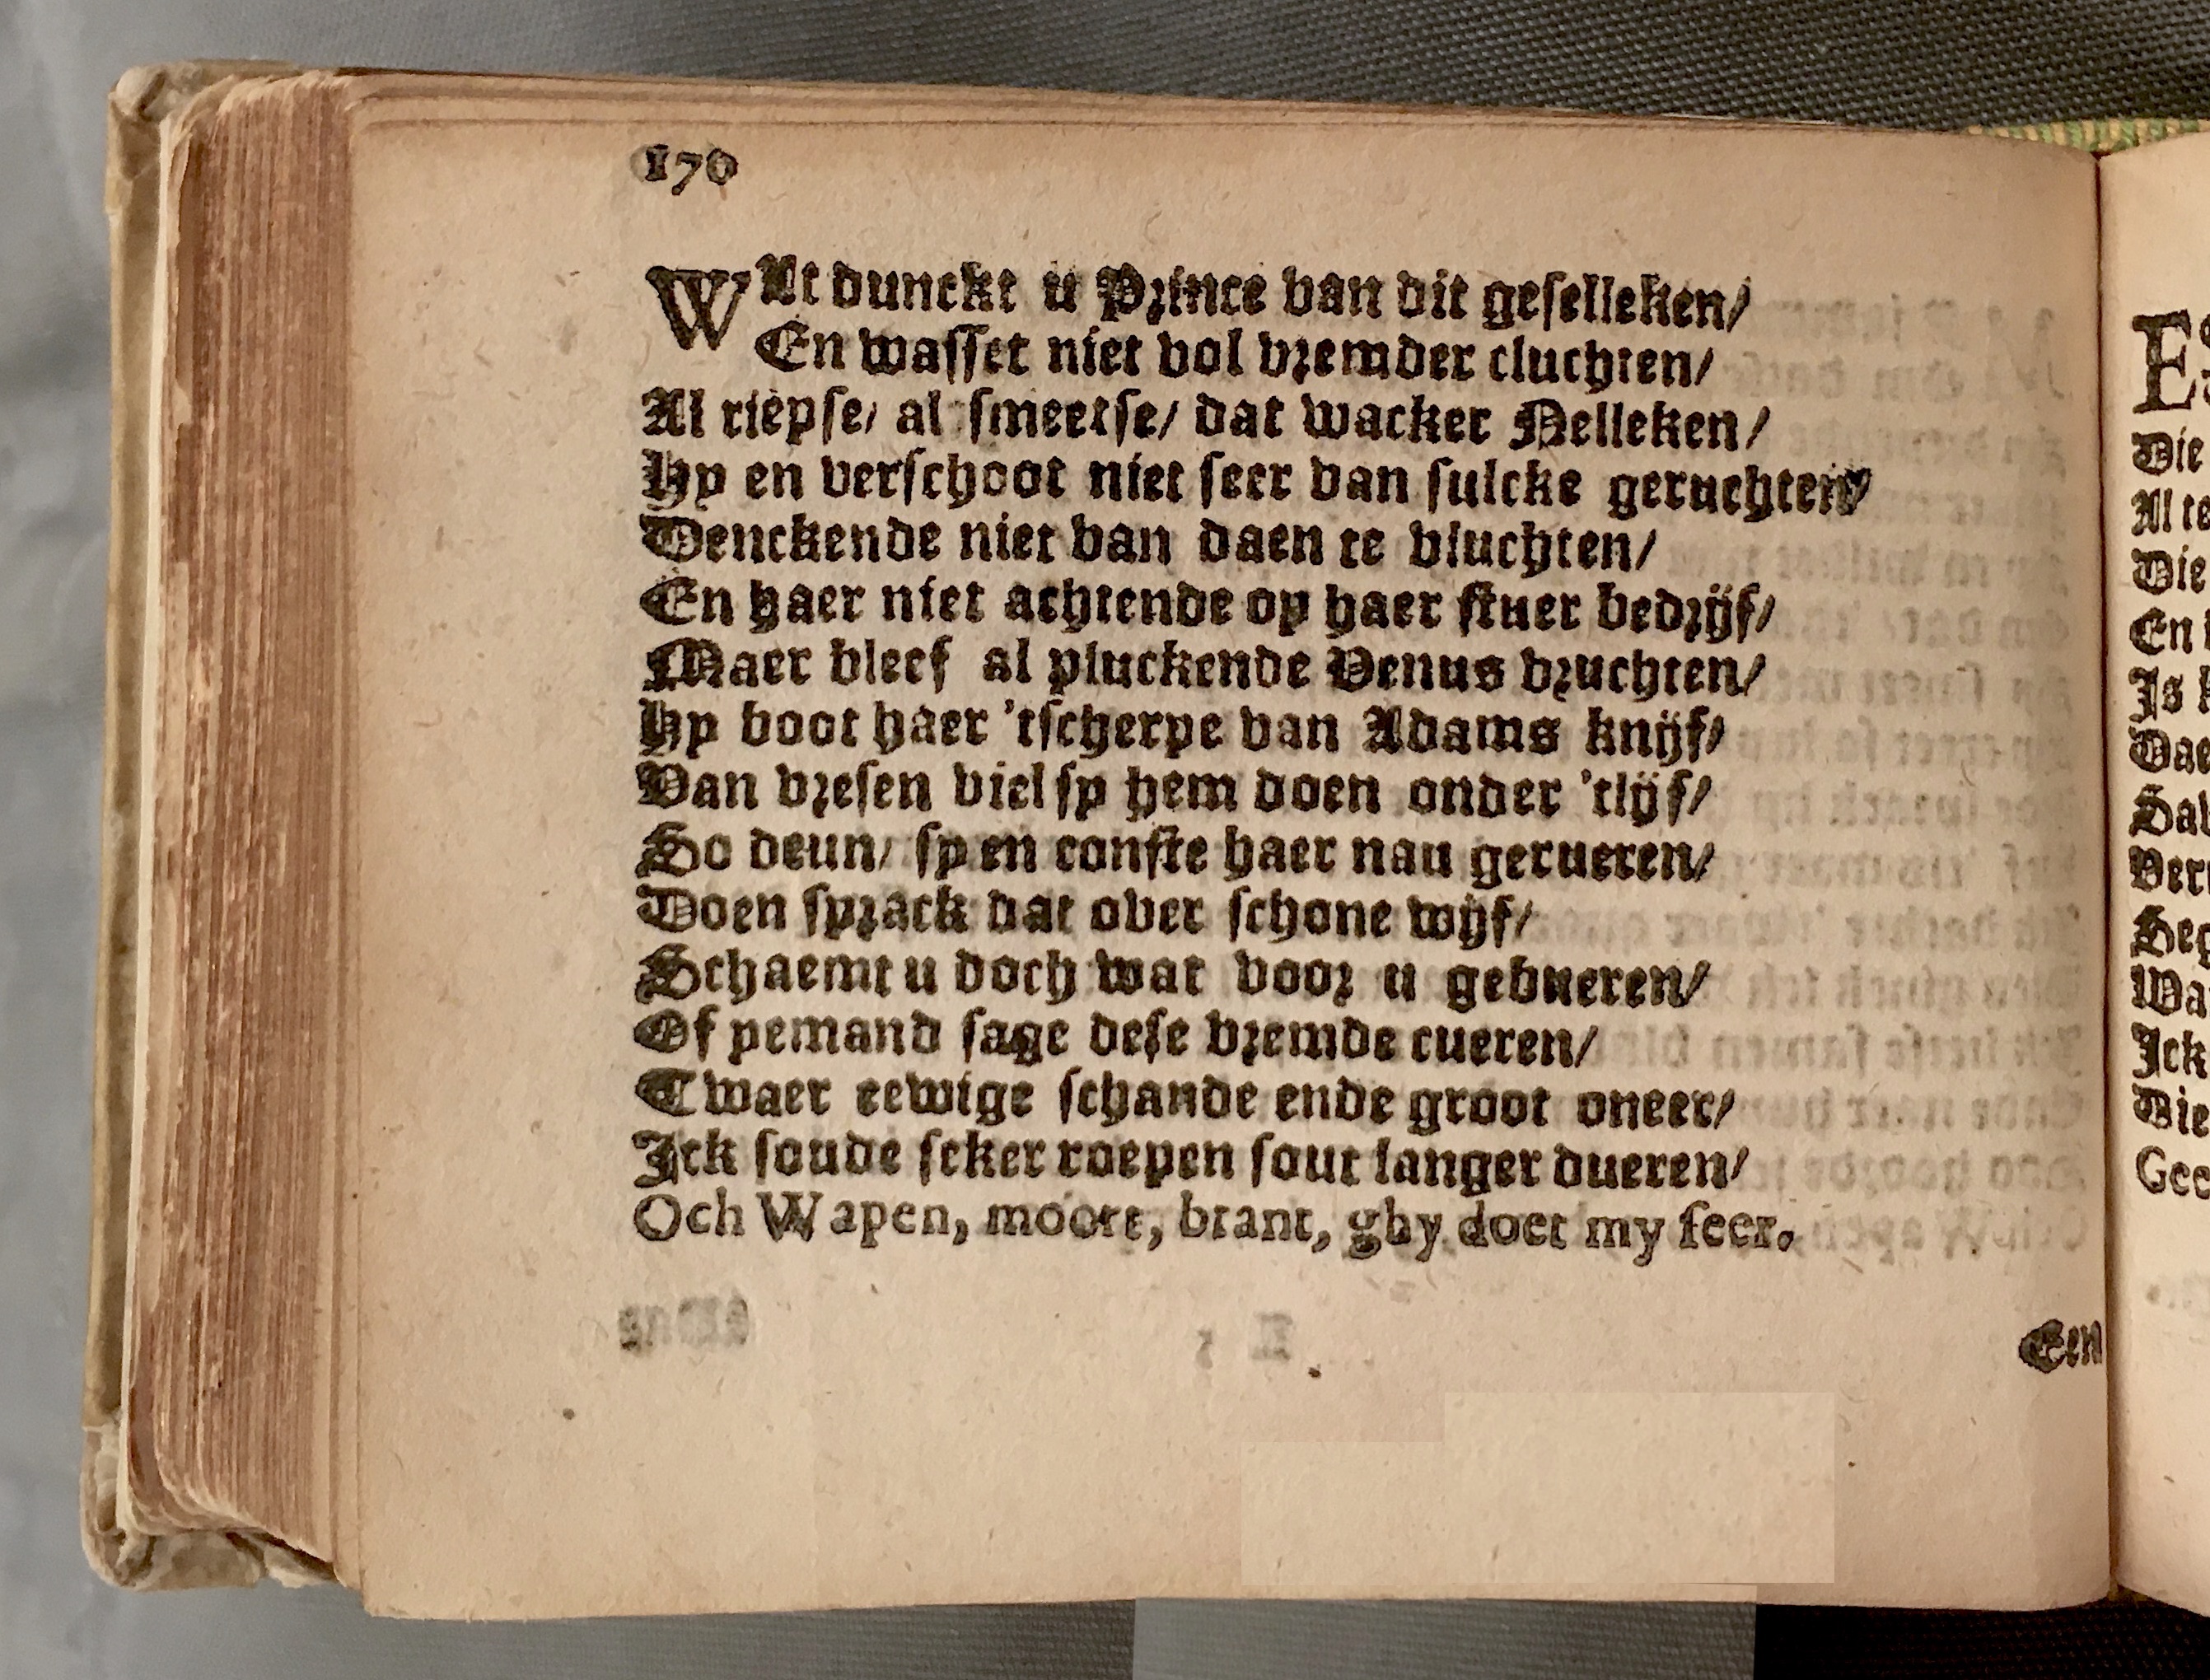 170
WAt dunckt u Prince van dit geselleken/
En wasset niet vol vremder cluchten/
Al riepse/ al smeetse/ dat wacker Nelleken/
Hy en verschoot niet seer van sulcke geruchten/
Denckende niet van daen te vluchten/
En haer niet achtende op haer stuer bedrijf/
Maer bleef al pluckende Venus vruchten/
Hy boot haer 'tscherpe van Adams knijf/
Van vresen viel sy hem doen onder 'tlijf/
So deun/ sy en conste haer nau gerueren/
Doen sprack dat over schone wijf/
Schaemt u doch wat voor u gebueren/
Of yemand sage dese vremde cueren/
Twaer eewige schande ende groot oneer/
Ick soude seker roepen sout langer dueren/
Och Wapen, moort, brant, ghy doet my seer.
Een
Die
En
Is
Ick
Die